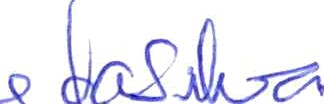 e da Silva